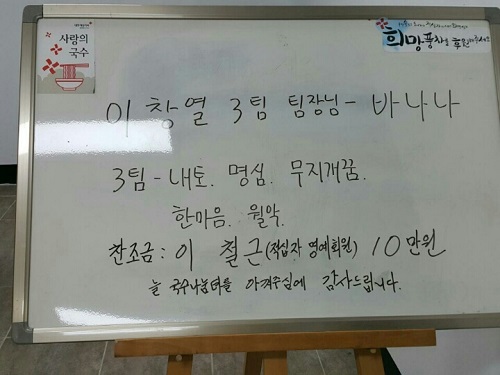 사랑의
국수
희망풍차를 후원해주세요
이 창열 3팀 팀장님 - 바나나
3팀 - 내토. 명심. 무지개꿈.
한마음. 월악.
찬조금 : 이 철근(적십자 명예회원) 10만원
늘 국수나눔터를 아껴주심에 감사드립니다.